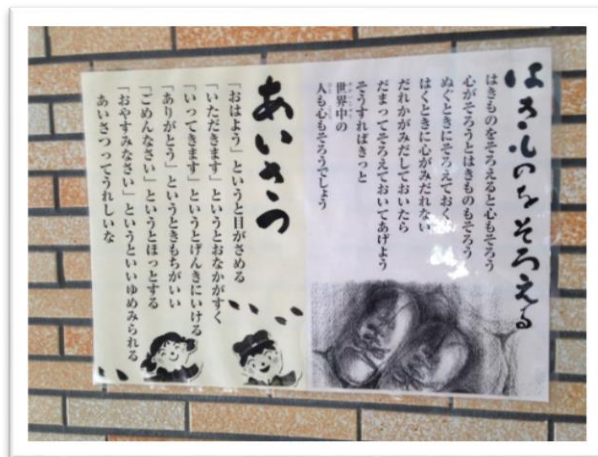 はきものをそろえる
はきものをそろえると心もそろう
心がそろうとはきものもそろう
ぬぐときにそろえておくと
はくときに心がみだれない
だれかがみだしておいたら
だまってそろえておいてあげよう
そうすればきっと
世界中の
人も心もそろうでしょう
あいさつ
「おはよう」というと目がさめる
「いただきます」というとおなかがすく
「いってきます」というとげんきにいける
「ありがとう」というときもちがいい
「ごめんなさい」というとほっとする
「おやすみなさい」というといいゆめみられる
あいさつってうれしいな